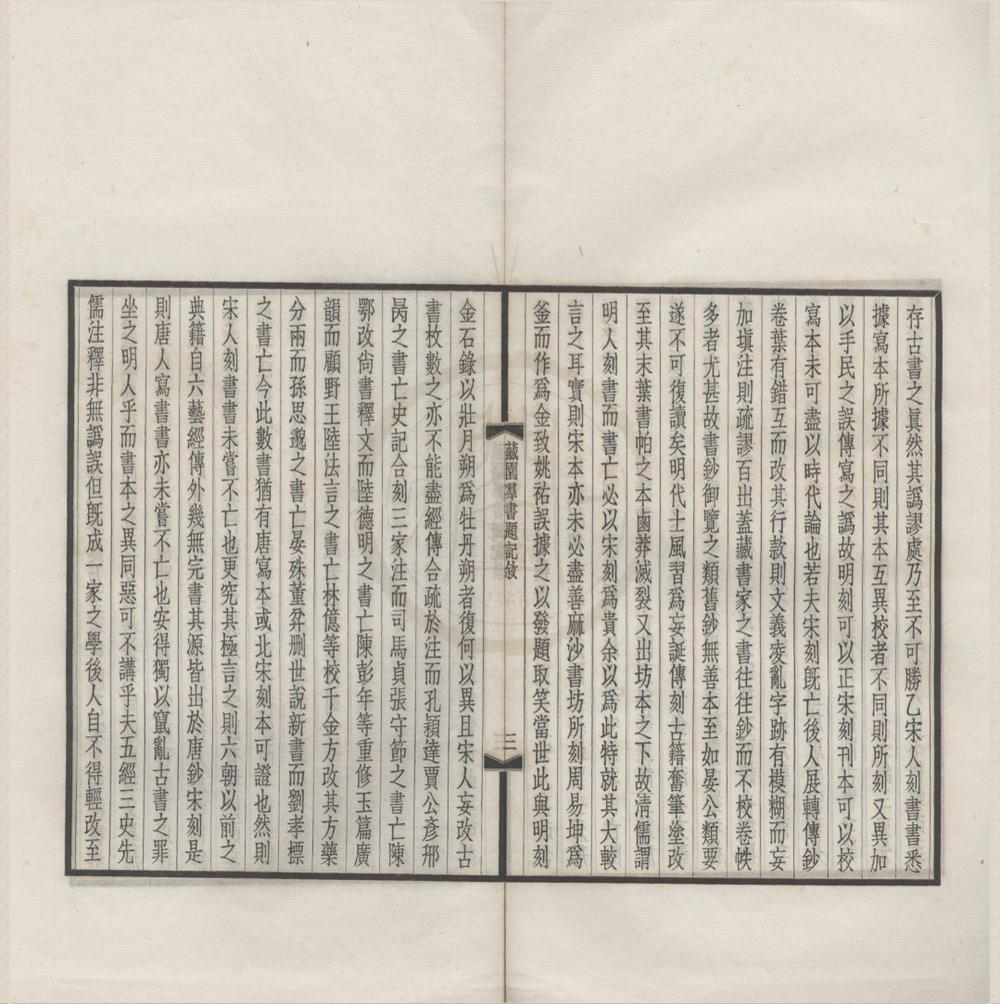 存古書之眞然其譌謬處乃至不可勝乙宋人刻書書悉
據寫本所據不同則其本互異校者不同則所刻又異加
以手民之誤傳寫之譌故明刻可以正宋刻刊本可以校
寫本未可盡以時代論也若夫宋刻旣亡後人展轉傳鈔
卷葉有錯互而改其行款則文義夌亂字跡有模糊而妄
加塡注則疏謬百出蓋藏書家之書往往鈔而不校卷帙
多者尤甚故書鈔御覽之類舊鈔無善本至如晏公類要
遂不可復讀矣明代士風習爲妄誕傳刻古籍奮筆塗改
至其末葉書帕之本鹵莽滅裂又出坊本之下故淸儒謂
明人刻書而書亡必以宋刻爲貴余以爲此特就其大較
言之耳實則宋本亦未必盡善麻沙書坊所刻周易坤爲
釜而作爲金致姚祐誤據之以發題取笑當世此與明刻
藏園羣書題記敘
三
金石錄以壯月朔爲牡丹朔者復何以異且宋人妄改古
書枚數之亦不能盡經傳合疏於注而孔穎達賈公彥邢
昺之書亡史記合刻三家注而司馬貞張守節之書亡陳
鄂改尙書釋文而陸德明之書亡陳彭年等重修玉篇廣
韻而顧野王陸法言之書亡林億等校千金方改其方藥
分兩而孫思邈之書亡晏殊董弅刪世說新書而劉孝標
之書亡今此數書猶有唐寫本或北宋刻本可證也然則
宋人刻書書未嘗不亡也更究其極言之則六朝以前之
典籍自六藝經傳外幾無完書其源皆出於唐鈔宋刻是
則唐人寫書書亦未嘗不亡也安得獨以竄亂古書之罪
坐之明人乎而書本之異同惡可不講乎夫五經三史先
儒注釋非無譌誤但旣成一家之學後人自不得輕改至